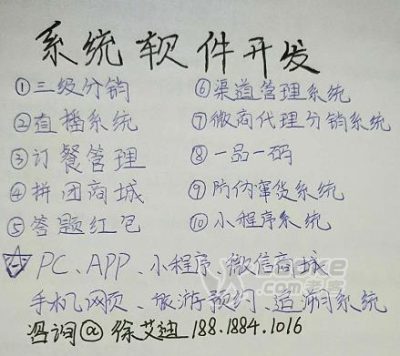 系统软件开发
①三级分销 ⑥渠道管理系统
②直播系统 ⑦微商代理分销系统
③订餐管理 ⑧一品一码
④拼团商城 ⑨防伪窜货系统
⑤答题红包 ⑩小程序系统
PC、APP、小程序、微信商城
手机网页、旅游预约、追溯系统
咨询@徐艾迪 188.1884.1016